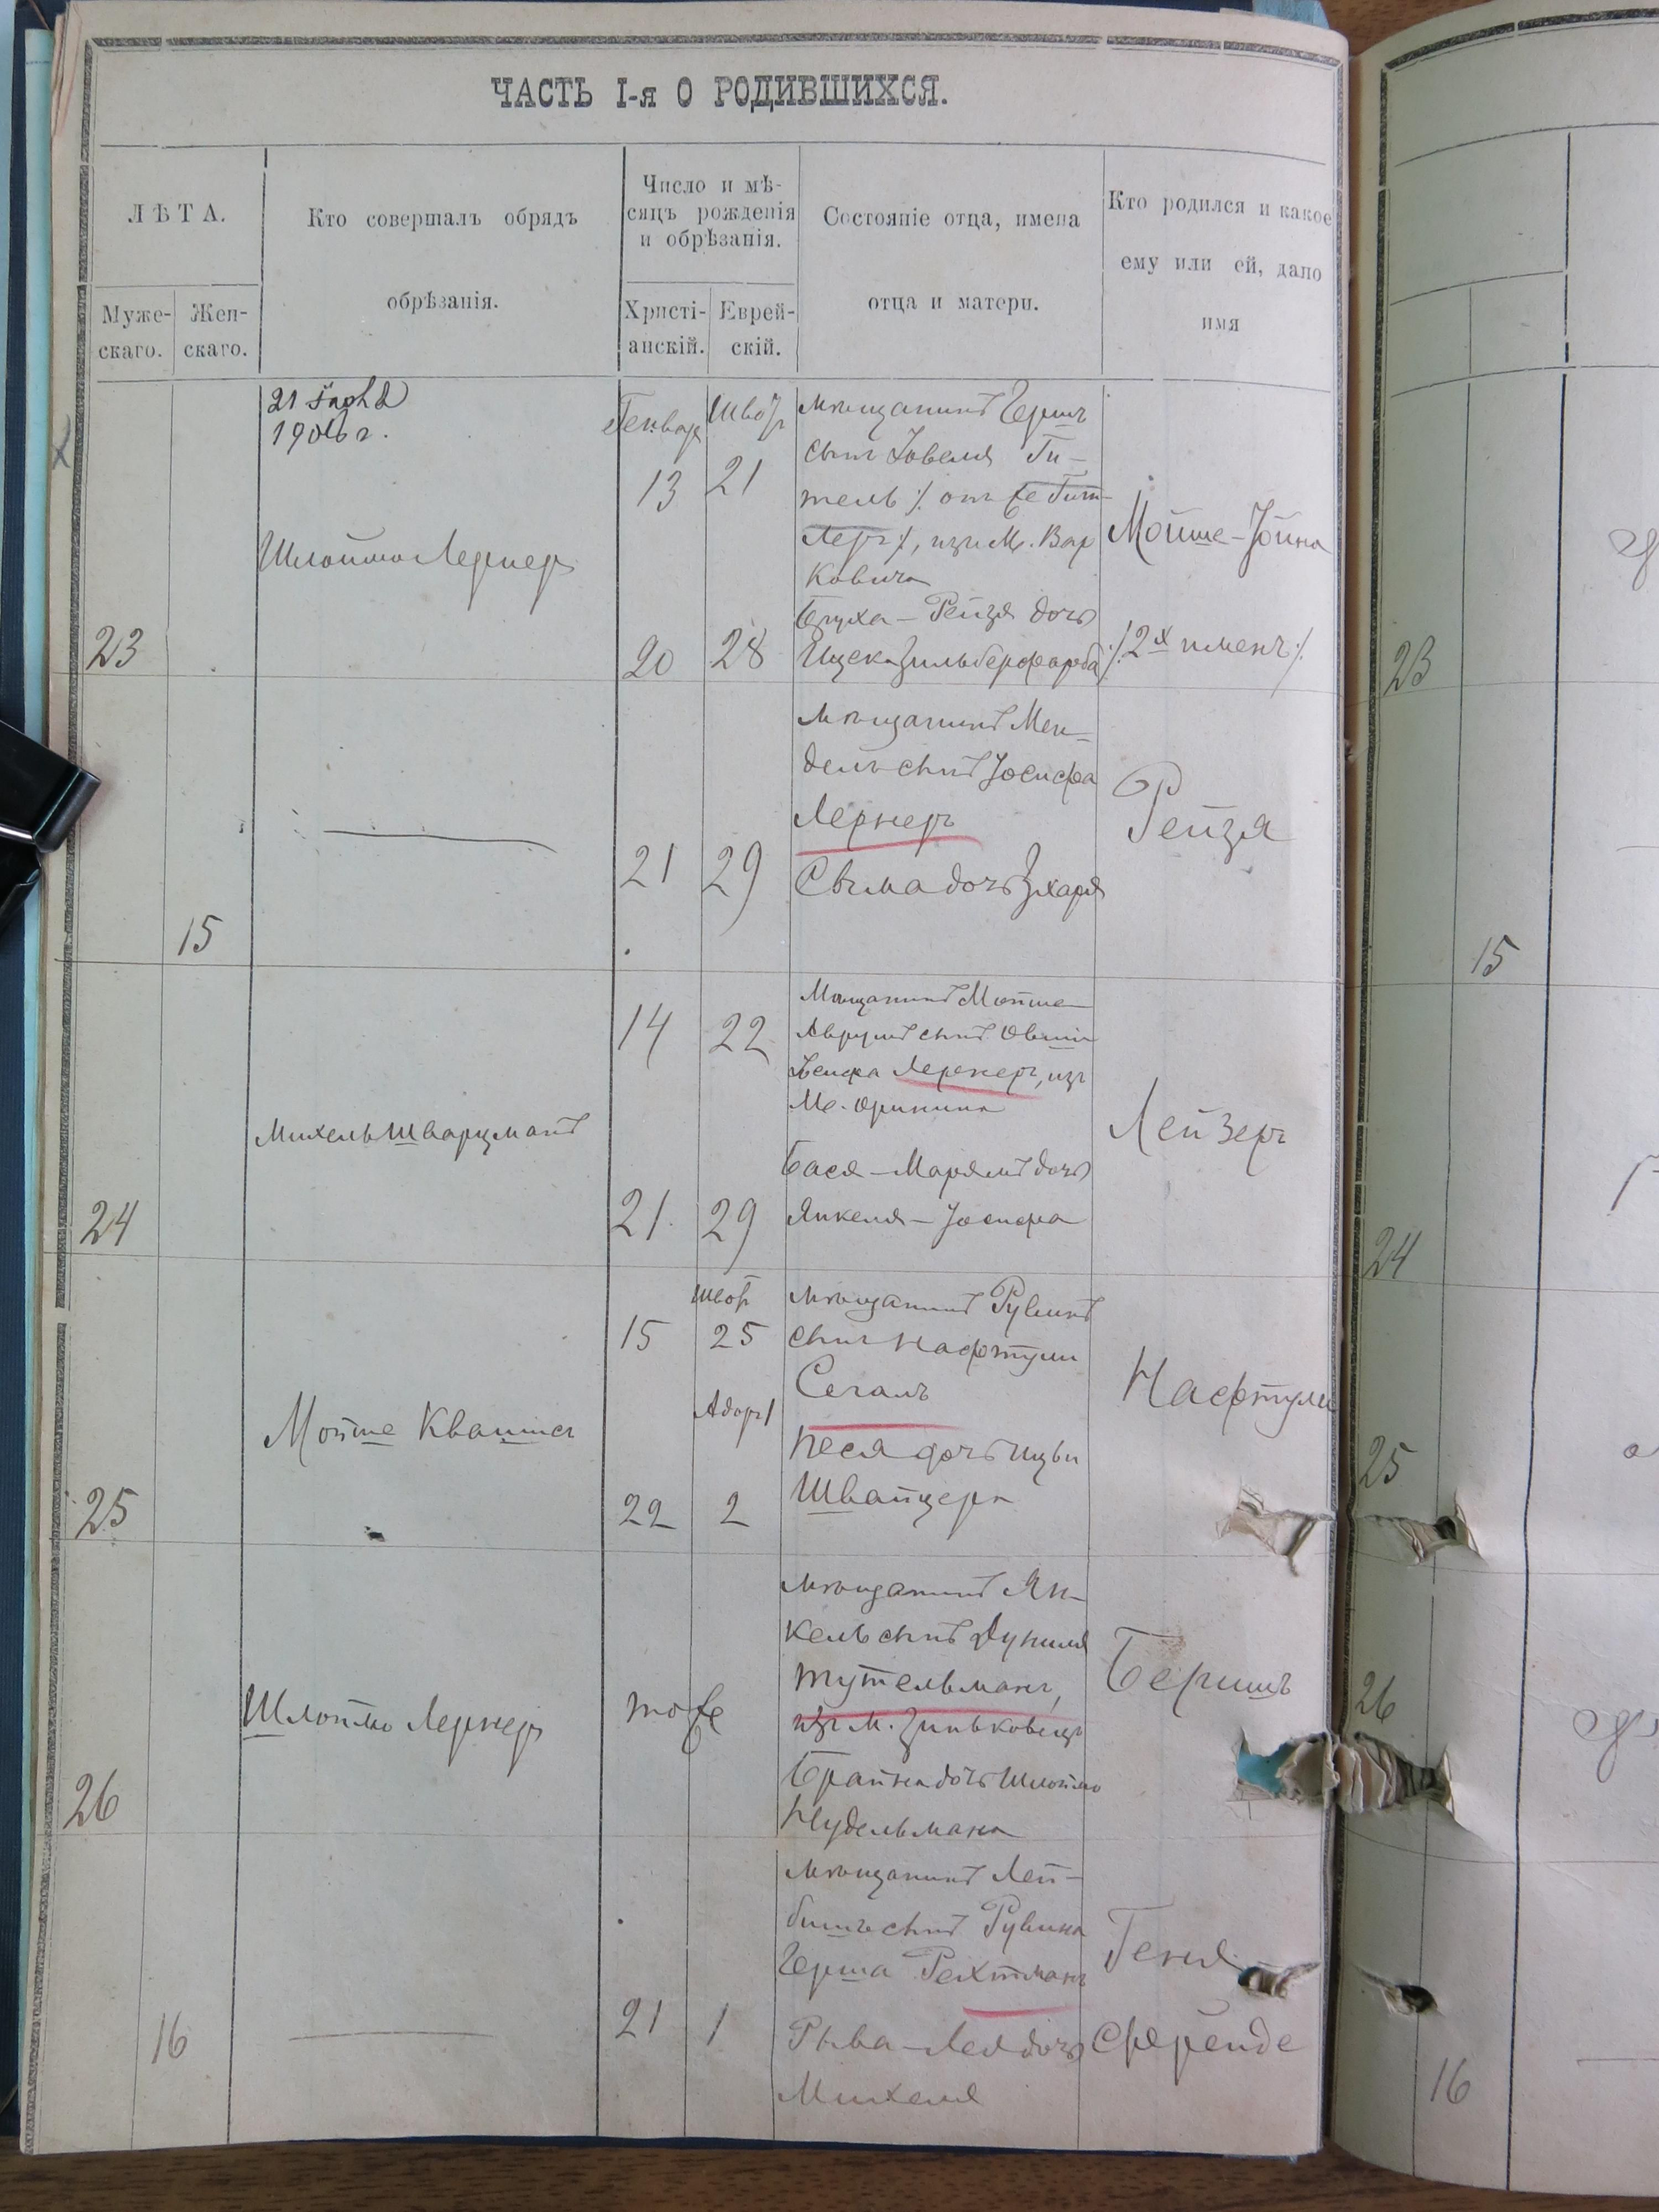 ЧАСТЬ I-я О РОДИВШИХСЯ.
ЛѢТА.
Муже-
скаго.
Жен-
скаго.
Кто совершалъ обрядъ
обрѣзанія.
Число и мѣ-
сяцъ рожденія
и обрѣзанія.
Христі-
анскій.
Еврей-
скій.
Состояніе отца, имена
отца и матери.
Кто родился и какое
ему или ей, дано
имя
21
1906 г.
Шлойма Лернеръ
23
Генвар
13
20
Шват
21
28
мѣщанинъ Гершъ
сынъ Іовеля Ги-
тель
изъ М. Вар
ковичъ
Бруха-Рейзя дочь
Ицека Зильберфарба
Мойше-Іойна
/2х именъ/
15
21
29
мѣщанинъ Мен-
дель сынъ Іосифа
Лернеръ
Сыма дочь Зхаря
Рейзя
24
Михель Шварцманъ
14
21
22
29
Мѣщанинъ Мойше
Аврумъ сынъ Овшія
Іосифа Лернеръ, изъ
М. Оринина
Бася-Марямъ дочь
Янкеля-Іосифа
Лейзеръ
25
Мойше Квашисъ
15
22
Шват
25
Адаръ
2
мѣщанинъ Рувинъ
сынъ Нафтули
Сегалъ
Песя дочь
Швайцера
Нафтули
26
Шлойма Лернеръ
тоже
мѣщанинъ Ян-
кель сынъ Дунила
Тутельманъ,
изъ М. Зиньковецъ
Брайна дочь Шлойма
Нудельмана
Беришъ
16
21
1
мѣщанинъ Лей-
бишъ сынъ Рувина
Герша Рехтманъ
Рыва-Лея дочь
Михеля
Геня-
Сференде
23
15
24
25
26
16